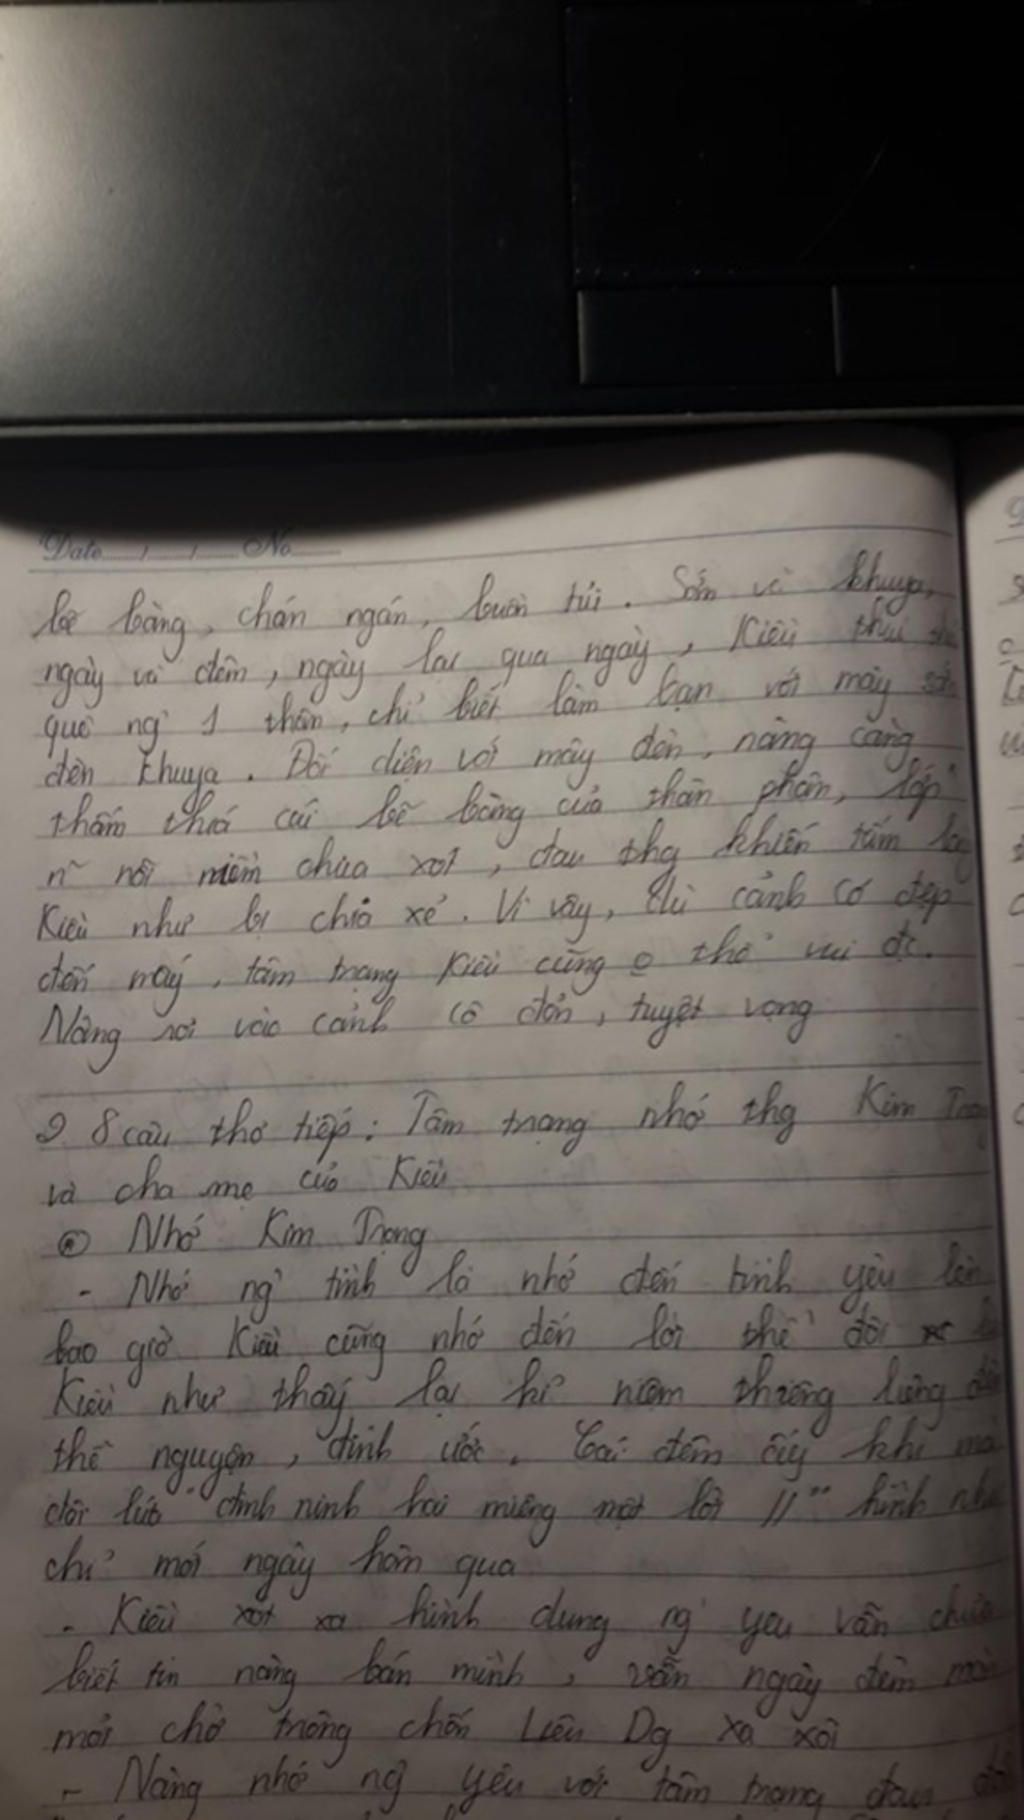 Date , , No
bẽ bàng, chán ngán, buồn tủi. Sớm và khuya,
ngày và đêm, ngày lại qua ngày, Kiều thui
quê ng' 1 thân, chỉ biết làm bạn với mây
đèn khuya. Đối diện với mây đèn, nàng càng
thấm thía cái bẽ bàng của thân phận, lớp
n~ nỗi niềm chua xót, đau thg khiến tấm
Kiều như bị chia xẻ. Vì vậy, dù cảnh có đẹp
đến mấy, tâm trạng Kiều cũng o thể vui đc.
Nàng rơi vào cảnh cô đơn, tuyệt vọng
2 8 câu thơ tiếp: Tâm trạng nhớ thg Kim
và cha mẹ của Kiều
a Nhớ Kim Trọng
- Nhớ ng' tình là nhớ đến tình yêu lên
bao giờ Kiều cũng nhớ đến lời thề đôi
Kiều như thấy lại kỉ niệm thiêng liêng
thề nguyện, đính ước. Cái đêm ấy khi
đôi lứa "đinh ninh hai miệng một lời //" hình
chỉ mới ngày hôm qua
- Kiều xót xa hình dung ng' yêu vẫn chưa
biết tin nàng bán mình, vẫn ngày đêm
mỏi chờ trông chốn Liêu Dg xa xôi
- Nàng nhớ ng' yêu với tâm trạng đau